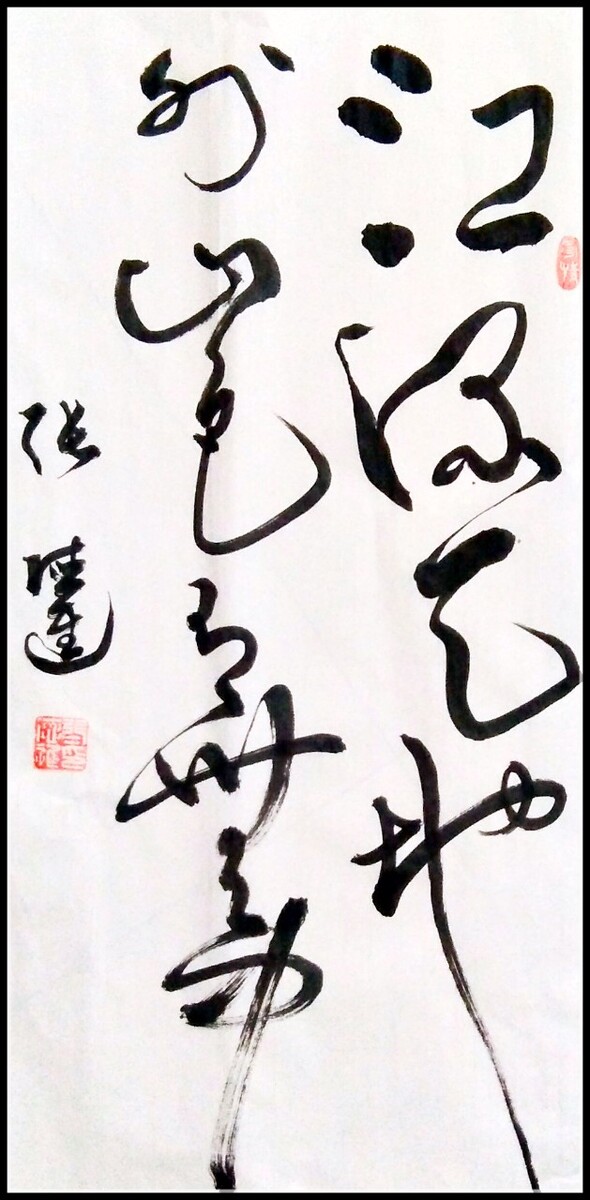 江流天地
外山色有无中
张